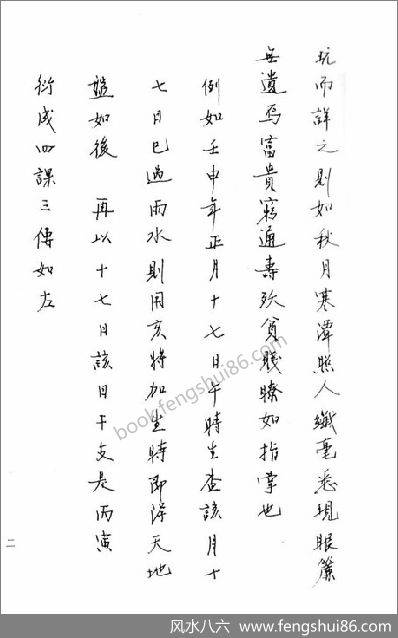 玩而詳之則如秋月寒潭照人纖毫悉現眼簾
無遺焉富貴窮通壽殀貧賤瞭如指掌也
例如壬申年正月十七日午時生查該月十
七日已過雨水則用亥將加生時即得天地
盤如後 再以十七日該日干支是丙寅
衍成四課三傳如左
二
book.fengshui86.com
风水八六 www.fengshui86.com